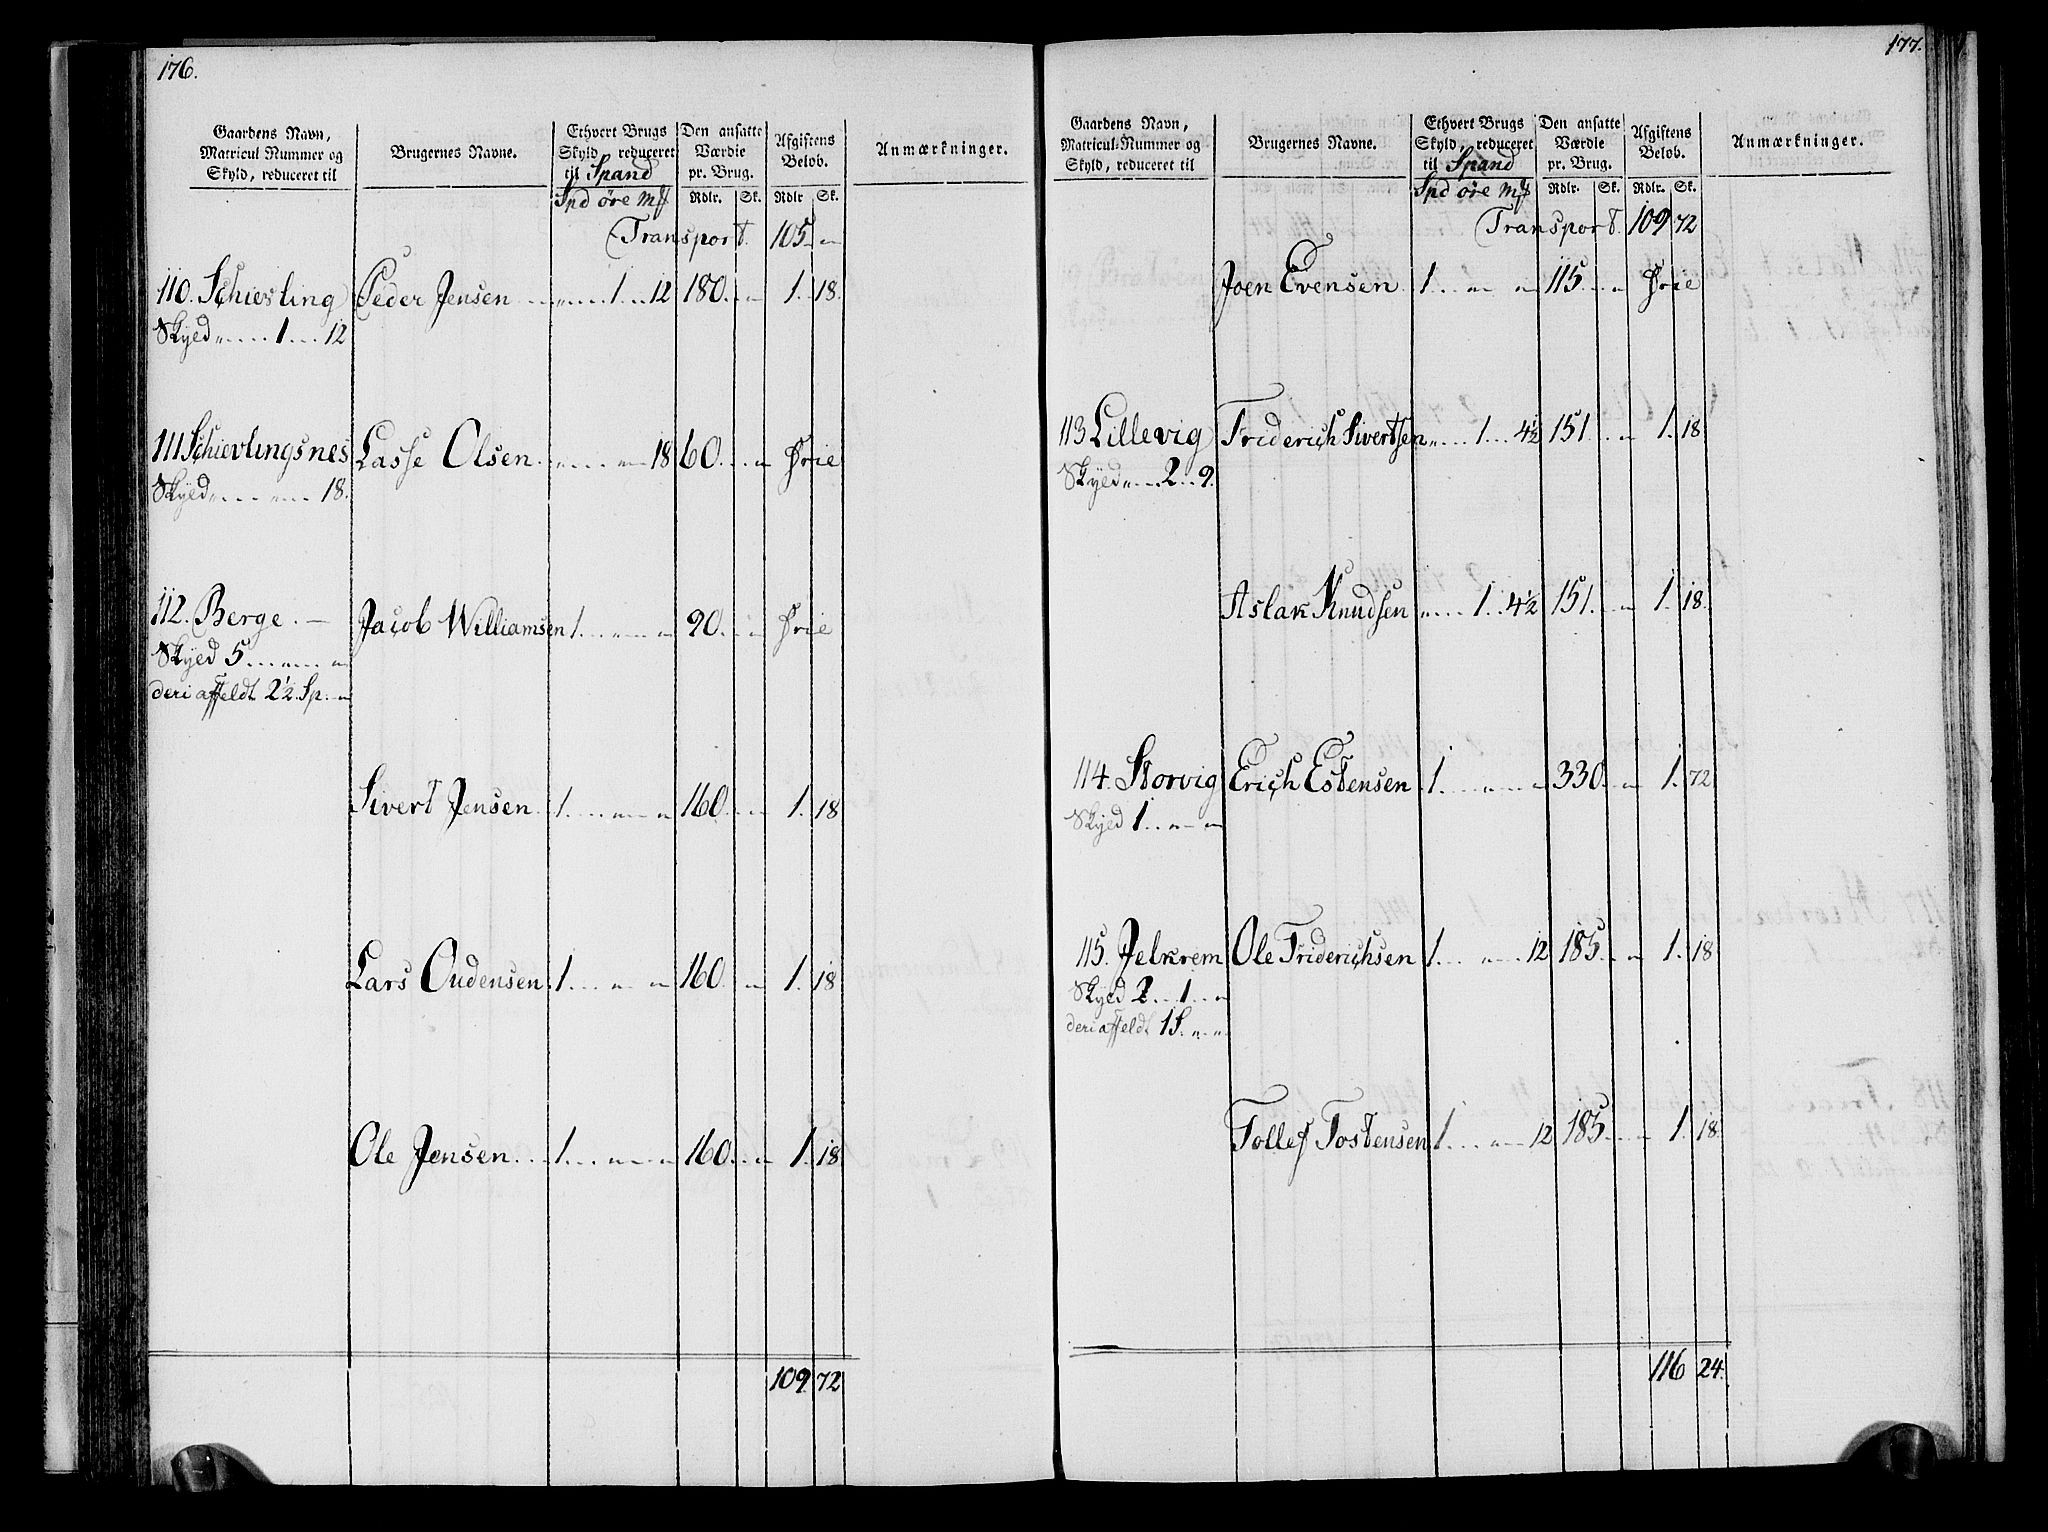 176.
Gaardens Navn, Matricul Nummer og Skyld, reduceret til
Brugernes Navne.
Ethvert Brugs Skyld, reduceret til Spand
Den ansatte Værdie pr. Brug.
Afgiftens Beløb.
Anmærkninger.
Spd øre mʄ Rdlr. Sk. Rdlr Sk.
Transport. 105 „
110. Schiesling Peder Jensen „ 1 12 180 „ 1. 18.
Skyed „ 1 12
111 Schievlingsnes Lasse Olsen „ „ 18 60 „ Frie
Skyed „ „ 18.
112. Berge. Jacob Williamsen 1 „ „ 90 „ Frie
Skyed 5 „ „
deri affeldt 2½ Sp. „
Sivert Jensen 1 „ „ 160 „ 1. 18
Lars Oudensen 1 „ „ 160 „ 1. 18
Ole Jensen 1 „ „ 160 „ 1. 18
109. 72
177.
Gaardens Navn, Matricul-Nummer og Skyld, reduceret til
Brugernes Navne.
Ethvert Brugs Skyld, reduceret til Spand
Den ansatte Værdie pr. Brug.
Afgiftens Beløb.
Anmærkninger.
Spd øre mʄ Rdlr. Sk. Rdlr. Sk.
Transport. 109 72
Joen Evensen 1 „ „ 115 „ Frie
113 Lillevig Friderich Sivertsen „ 1 4½ 151 „ 1. 18
Skyed „ 2 9.
Aslak Knudsen „ 1 4½ 151 „ 1. 18.
114. Storvig Erich Estensen 1 „ „ 330 „ 1. 72
Skyed 1 „ „
115. Jelkrem Ole Friderichsen 1 „ 12 185 „ 1. 18
Skyed 2 1 „
deri affeldt 1 S. „ „
Tollef Tostensen 1 „ 12 185 „ 1. 18
116 24.